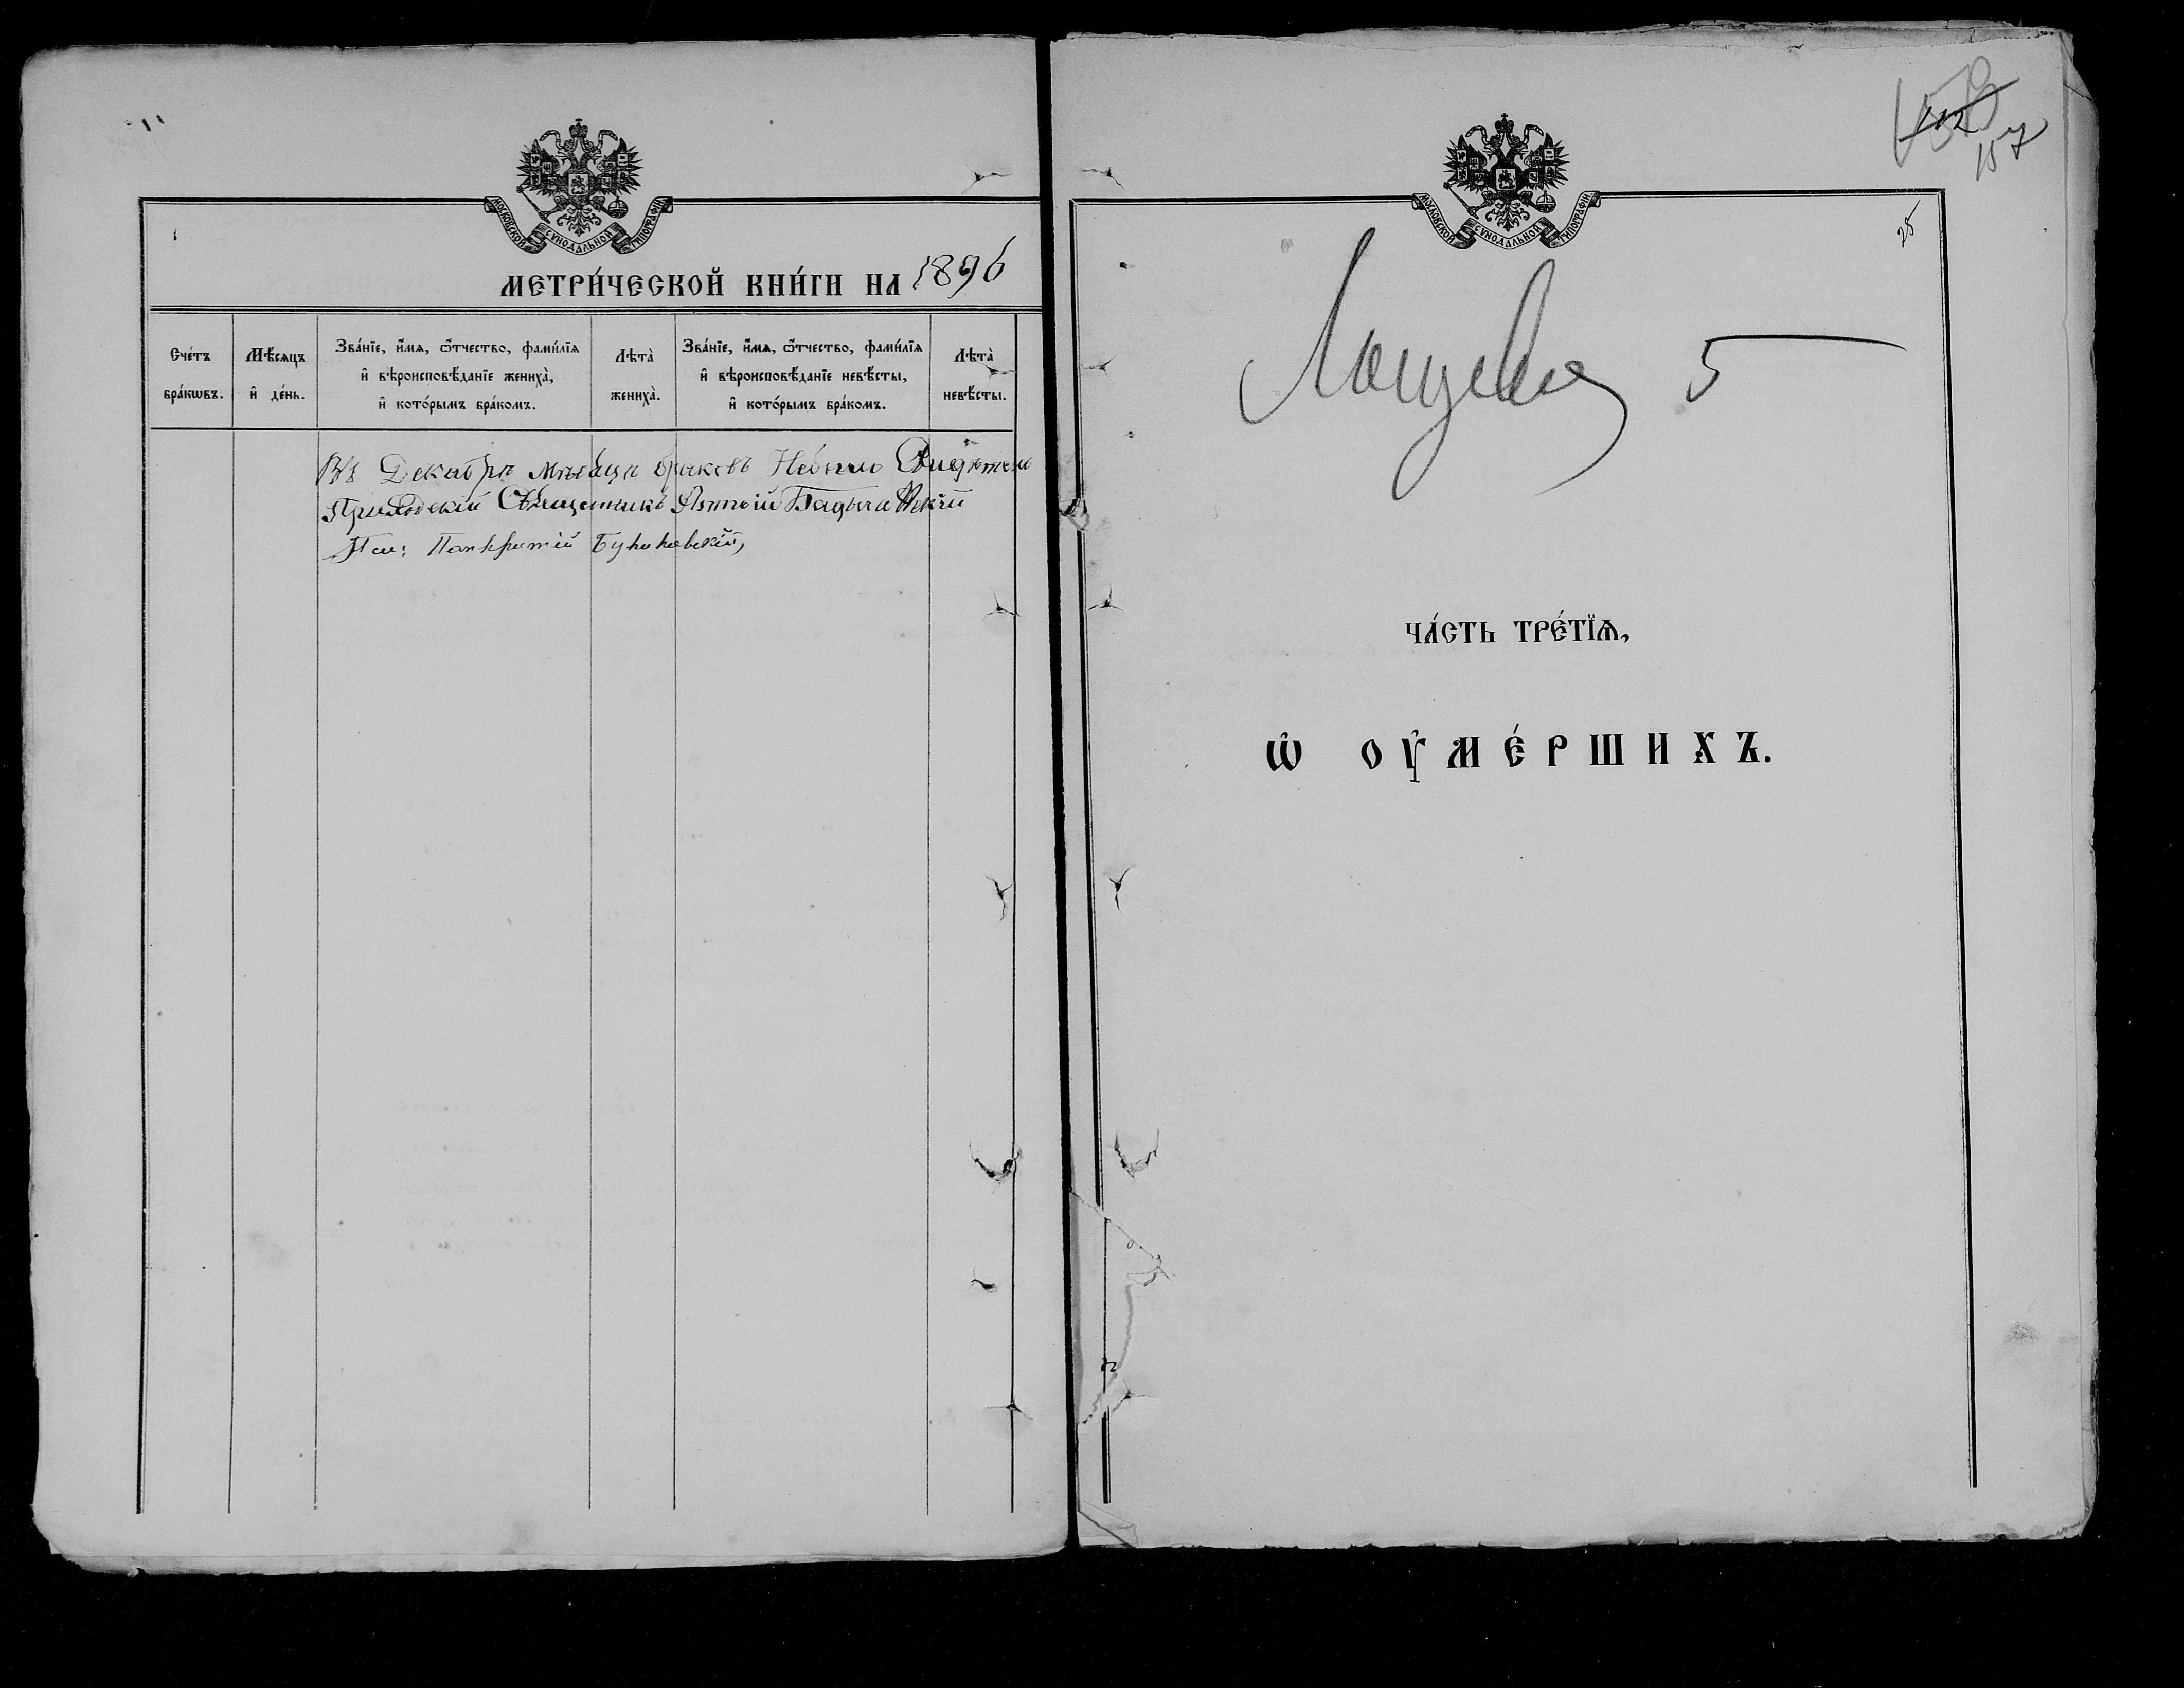 МОСКОВСКОЙ СѴНОДАЛЬНОЙ ТИПОГРАФІИ.
МЕТРИ́ЧЕСКОЙ КНИ́ГИ НА 1896
Сче́тъ бра́кѡвъ.
Мѣ́сяцъ и҆ де́нь.
Зва́нїе, и҆́мѧ, ѻ҆́тчество, фами́лїѧ
и҆ вѣроисповѣ́данїе жениха̀,
и҆ кото́рымъ бра́комъ.
Лѣта̀ жениха̀.
Зва́нїе, и҆́мѧ, ѻ҆́тчество, фами́лїѧ
и҆ вѣроисповѣ́данїе невѣ́сты,
и҆ кото́рымъ бра́комъ.
Лѣта̀ невѣ́сты.
Въ Декабрѣ мѣсяцѣ браковъ Небыло
Приходскій Священникъ
Пс: Панкратій
МОСКОВСКОЙ СѴНОДАЛЬНОЙ ТИПОГРАФІИ.
112
157
25
5
ЧА́СТЬ ТРЕ́ТЇѦ,
Ѡ҆ ОУ҆МЕ́РШИХЪ.